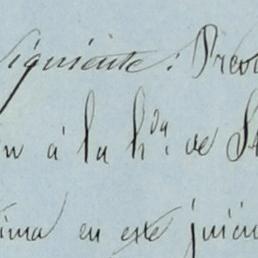 Siguiente: Prevo
n á la h.da de S
ima en este juici